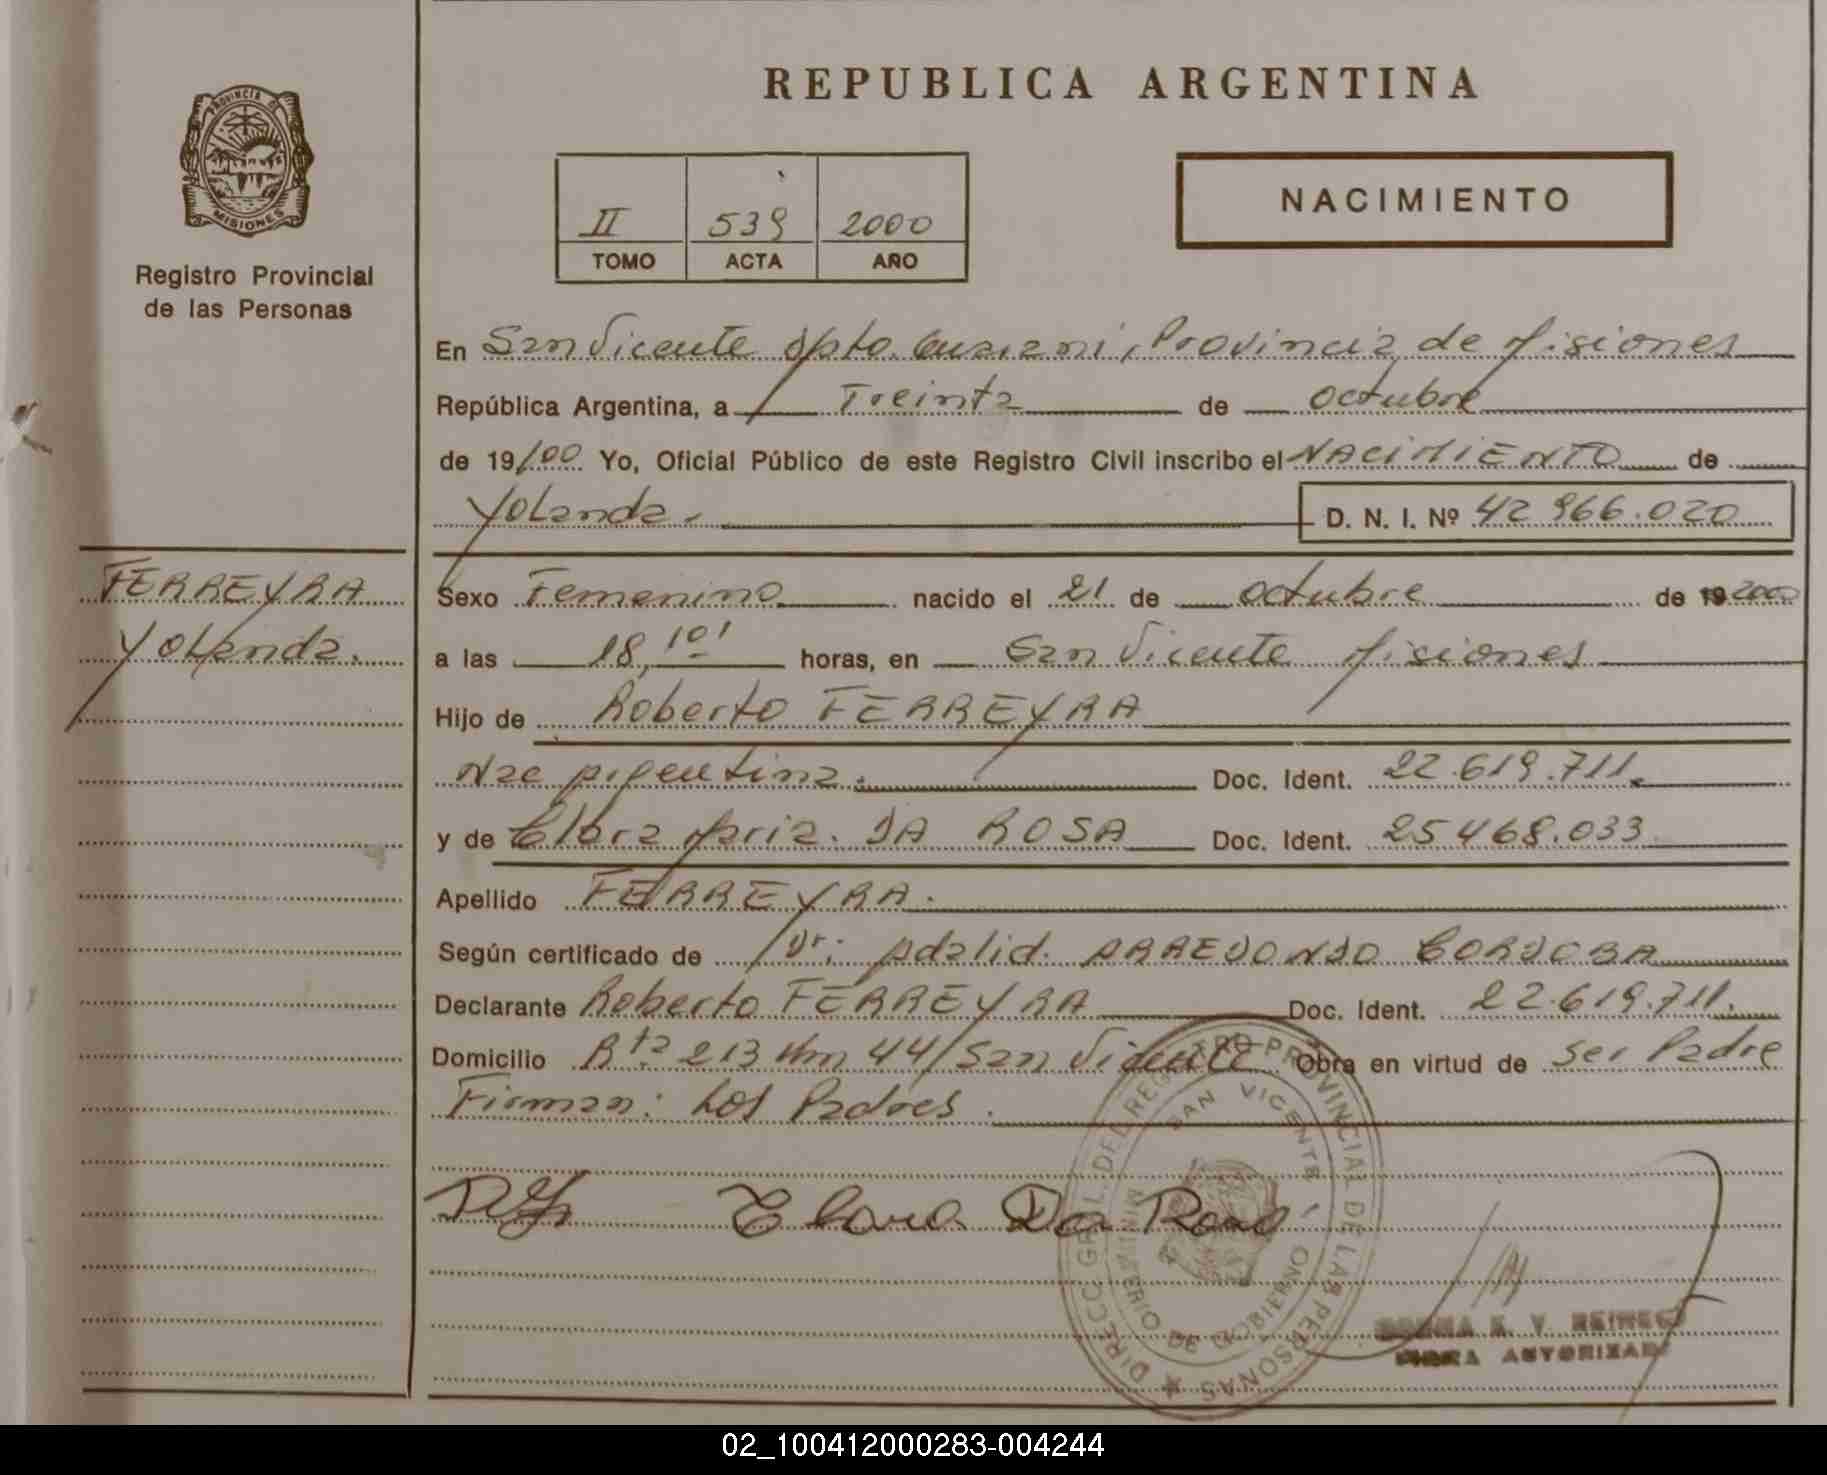 REPUBLICA ARGENTINA
PROVINCIA D
MISIONES
Registro Provincial
de las Personas
II 539 2000
TOMO ACTA AÑO
NACIMIENTO
En San Vicente Dpto. Guarani, Provincia de Misiones
República Argentina, a Treinta de octubre
de 19/00 Yo, Oficial Público de este Registro Civil inscribo el NACIMIENTO de
Yolanda. D. N. I. Nº 42 966.020
FERREYRA
Yolanda.
Sexo Femenino nacido el 21 de octubre de 19 2000
a las 18,10' horas, en San Vicente Misiones
Hijo de Roberto FERREYRA
Nac Argentina. Doc. Ident. 22.619.711.
y de Clara Maria. DA ROSA Doc. Ident. 25468.033
Apellido FERREYRA.
Según certificado de Dr: Adalid. ARREDONDO CORDOBA
Declarante Roberto FERREYRA Doc. Ident. 22.619.711.
Domicilio Rta 213 Km 44/San Vicente Obra en virtud de ser Padre
Firman: Los Padres.
Clara Da Rosa
DIRECC. GRAL. DEL REGISTRO PROVINCIAL DE LAS PERSONAS
SAN VICENTE
MINISTERIO DE GOBIERNO
FIRMA AUTORIZADA
02_100412000283-004244